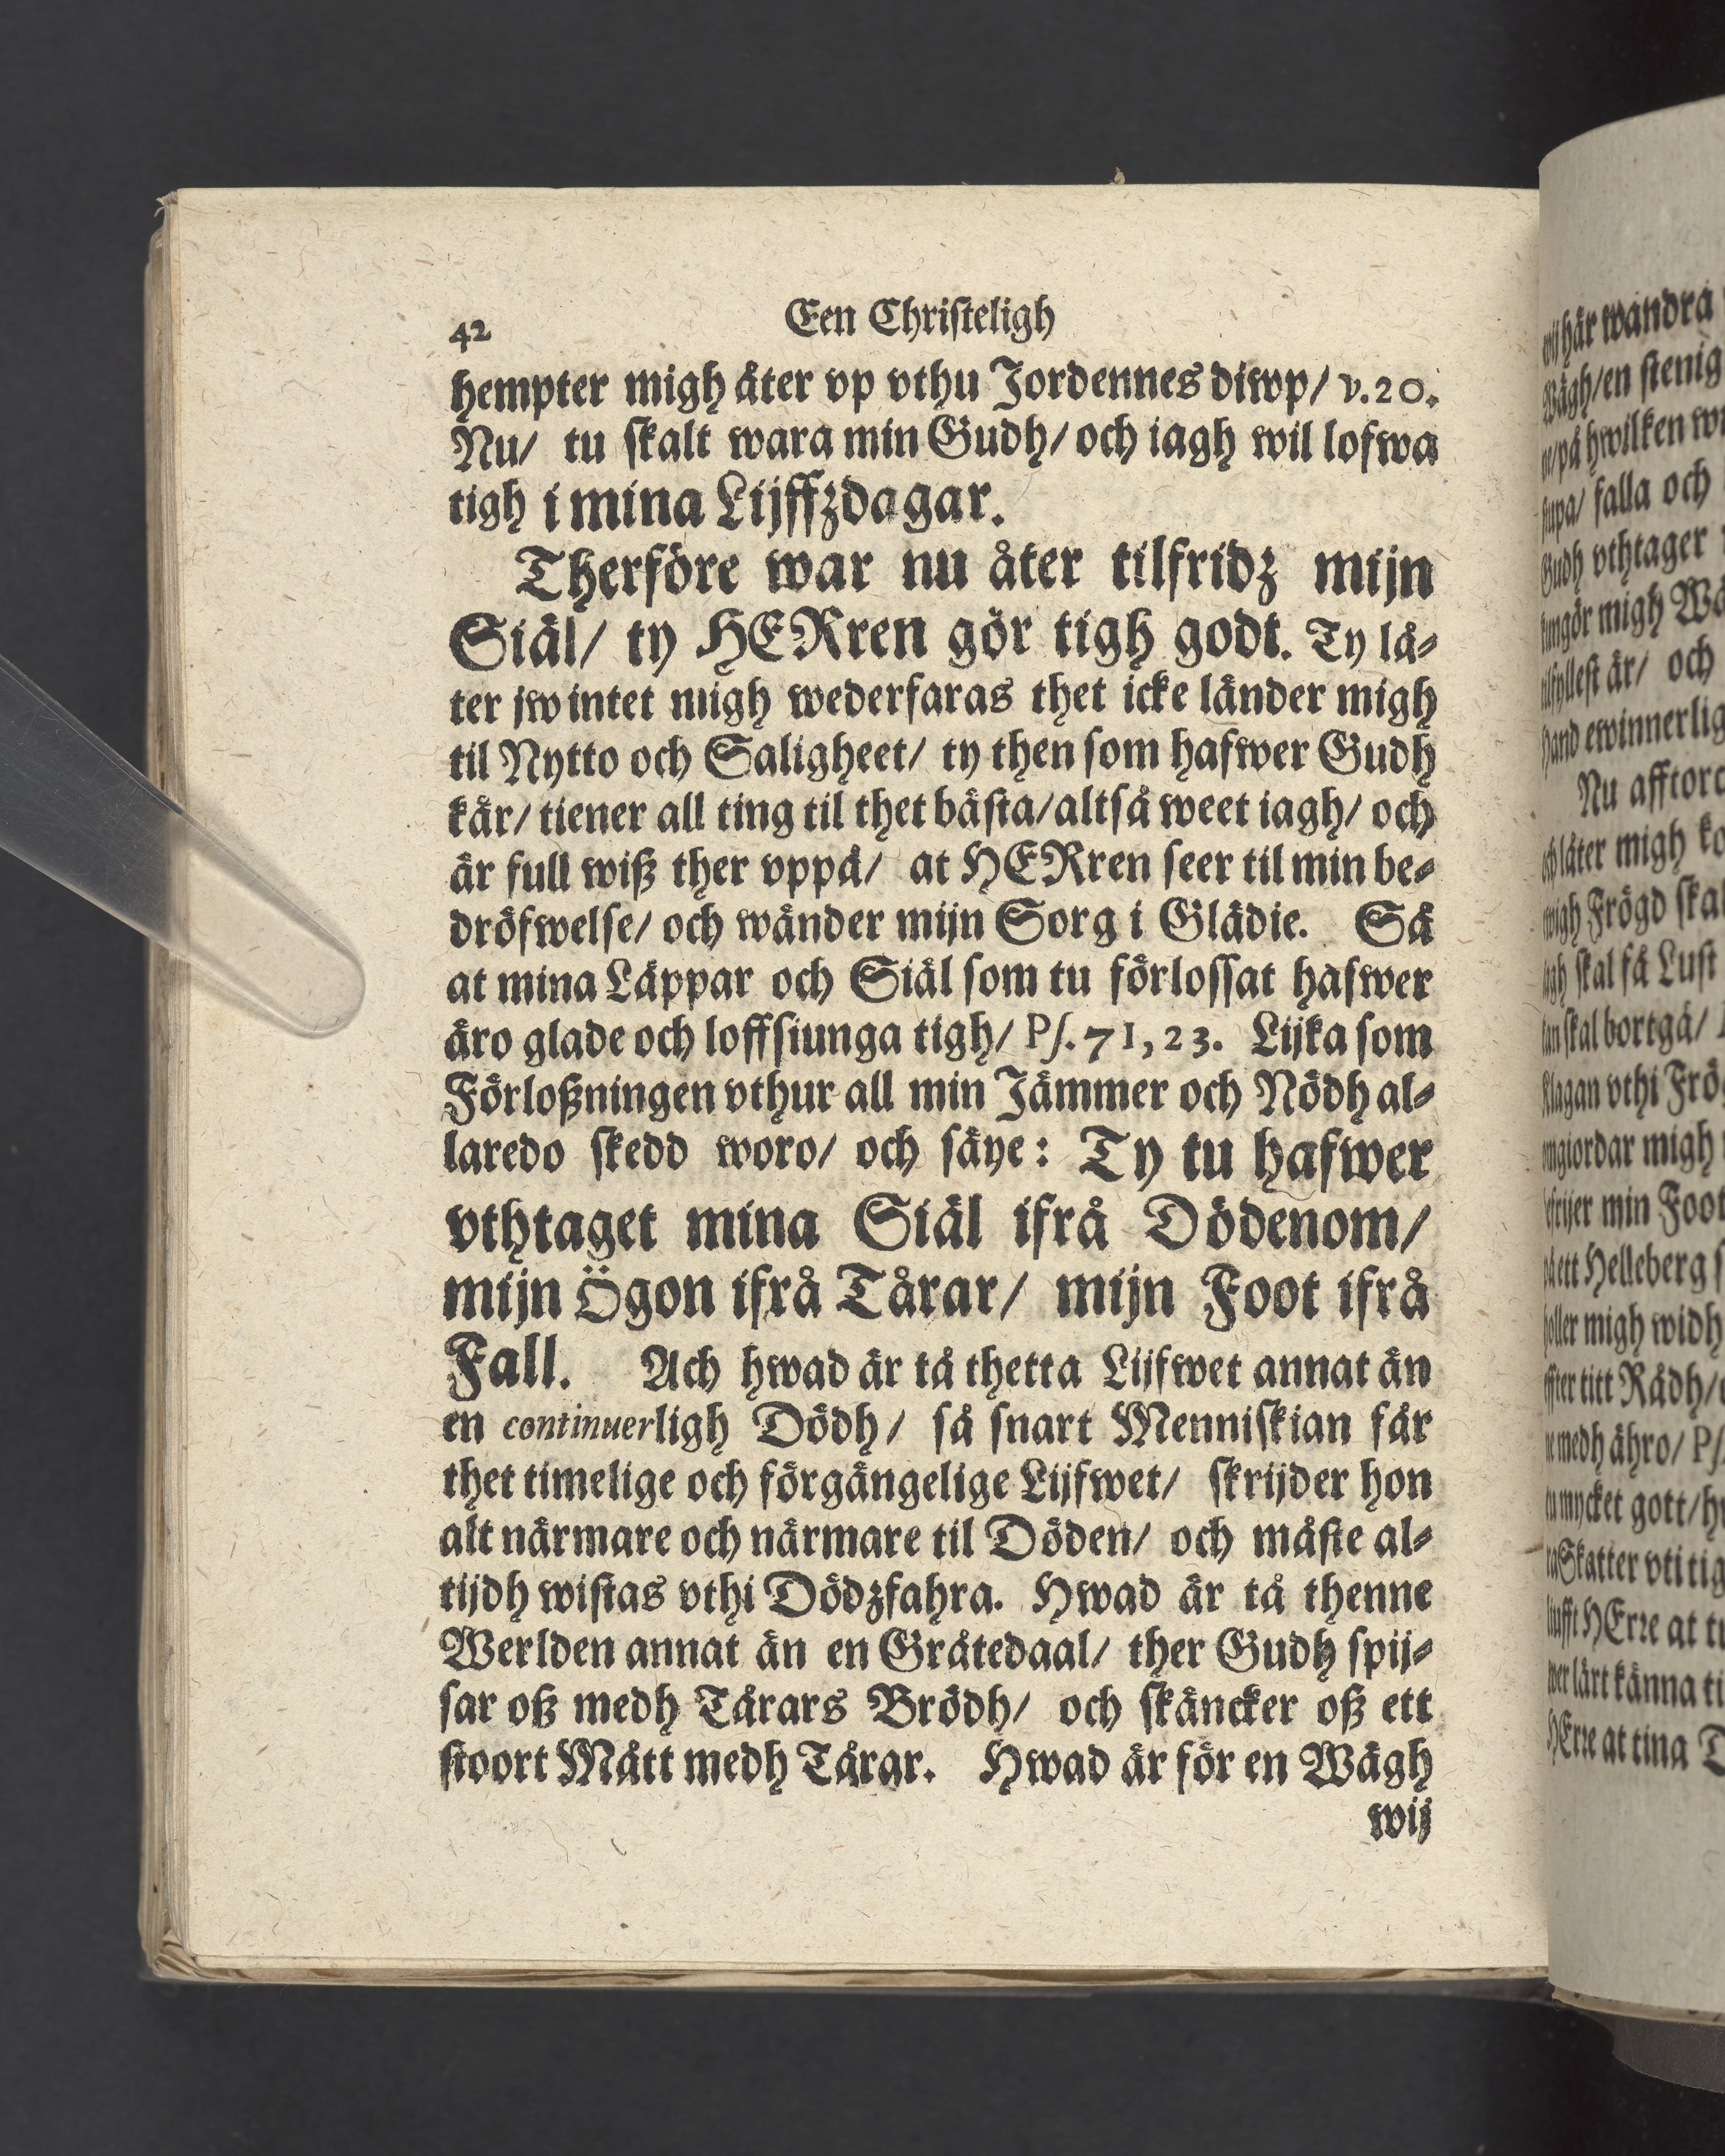 42
Een Christeligh
hempter migh åter vp vthu Jordennes diwp/ v. 20.
Nu/ tu skalt wara min Gudh/ och iagh wil lofwa
tigh i mina Lijffzdagar.
Therföre war nu åter tilfridz mijn
Siäl/ ty HERren gör tigh godt. Ty lå-
ter jw intet migh wederfaras thet icke länder migh
til Nytto och Saligheet/ ty then som hafwer Gudh
kär/ tiener all ting til thet bästa/ altså weet iagh/ och
är full wiß ther vppå/ at HERren seer til min be-
dröfwelse/ och wänder mijn Sorg i Glädie. Så
at mina Läppar och Siäl som tu förlossat hafwer
äro glade och loffsiunga tigh/ Ps. 71, 23. Lijka som
Förloßningen vthur all min Jämmer och Nödh al-
laredo skedd woro/ och säye: Ty tu hafwer
vthtaget mina Siäl ifrå Dödenom/
mijn Ögon ifrå Tårar/ mijn Foot ifrå
Fall. Ach hwad är tå thetta Lijfwet annat än
en continuerligh Dödh/ så snart Menniskian får
thet timelige och förgängelige Lijfwet/ skrijder hon
alt närmare och närmare til Döden/ och måste al-
tijdh wistas vthi Dödzfahra. Hwad är tå thenne
Werlden annat än en Gråtedaal/ ther Gudh spij-
sar oß medh Tårars Brödh/ och skäncker oß ett
stoort Mått medh Tårar. Hwad är för en Wägh
wij
här wandra
en stenig
på hwilken
falla och
Gudh vthtager
migh
är/ och
ewinnerlig
Nu
låter migh
Frögd
skal få Lust
skal bortgå/
vthi
migh
min Foot
ett Helleberg
migh widh
titt Rådh/
medh ähro/
mycket gott/
Skatter vti
HErre at
lärt känna
HErre at tina